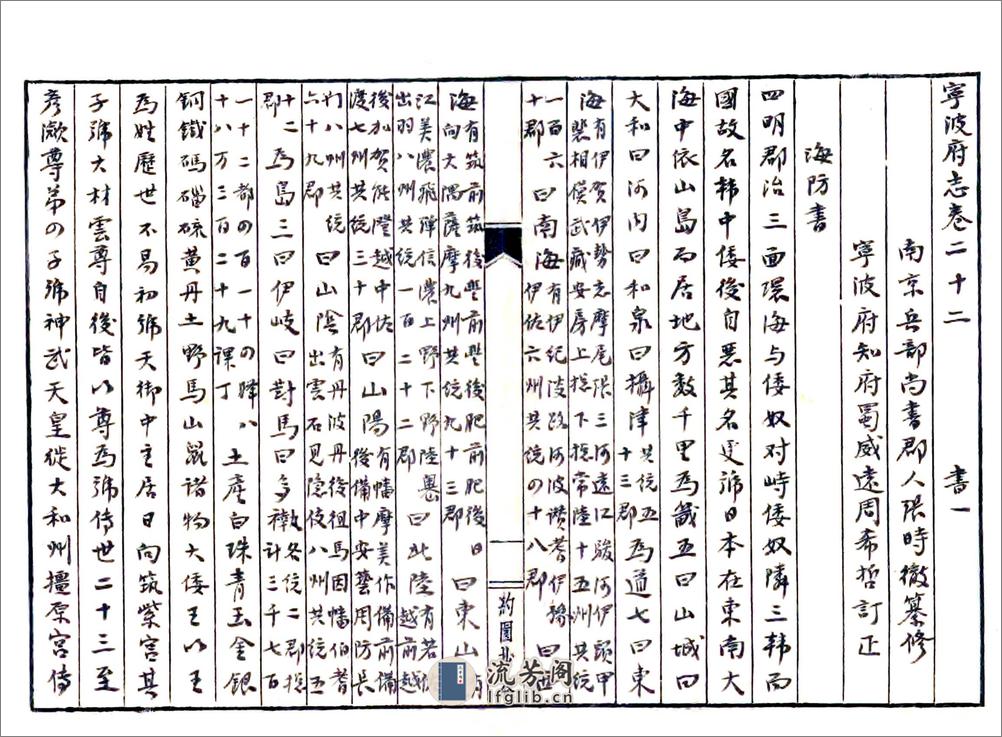 寧波府志卷二十二　書一
南京兵部尚書郡人張時徹纂修
寧波府知府蜀威遠周希哲訂正
海防書
四明郡治三面環海与倭奴对峙倭奴隣三韩而
國故名韩中倭後自恶其名更號日本在東南大
海中依山島而居地方数千里為畿五曰山城曰
大和曰河内曰和泉曰攝津共統五十三郡為道七曰東
海有伊賀伊勢志摩尾張三河遠江駿河伊頭甲斐相模武藏安房上総下総常陸十五州共統
一百六十郡曰南海有伊紀淡路河波讃耆伊豫伊佐六州共統の十八郡曰西
約園
海有筑前筑後豊前豊後肥前肥後日向大隅薩摩九州共統九十三郡曰東山有
江美濃飛騨信濃上野下野陸奥出羽八州共統一百二十二郡曰北陸有若佐越前越
後加賀能登越中佐渡七州共統三十郡曰山陽有幡摩美作備前備後備中安藝周防長
门八州共統六十九郡曰山陰有丹波丹後徂馬因幡伯耆出雲石見隠伎八州共統五
十二郡為島三曰伊岐曰对馬曰多褹各統二郡総計三千七百
一十二都の百一十の驛八十八万三百二十九課丁土產白珠青玉金銀
銅鐵碼磁硫黄丹土野馬山鼠諸物大倭王以王
為姓歴世不易初號天御中主居日向筑紫宫其
子號大材雲尊自後皆以尊為號傳世二十三至
彦瀲尊弟の子號神武天皇從大和州橿原宫傳
流芳阁
lfglib.cn